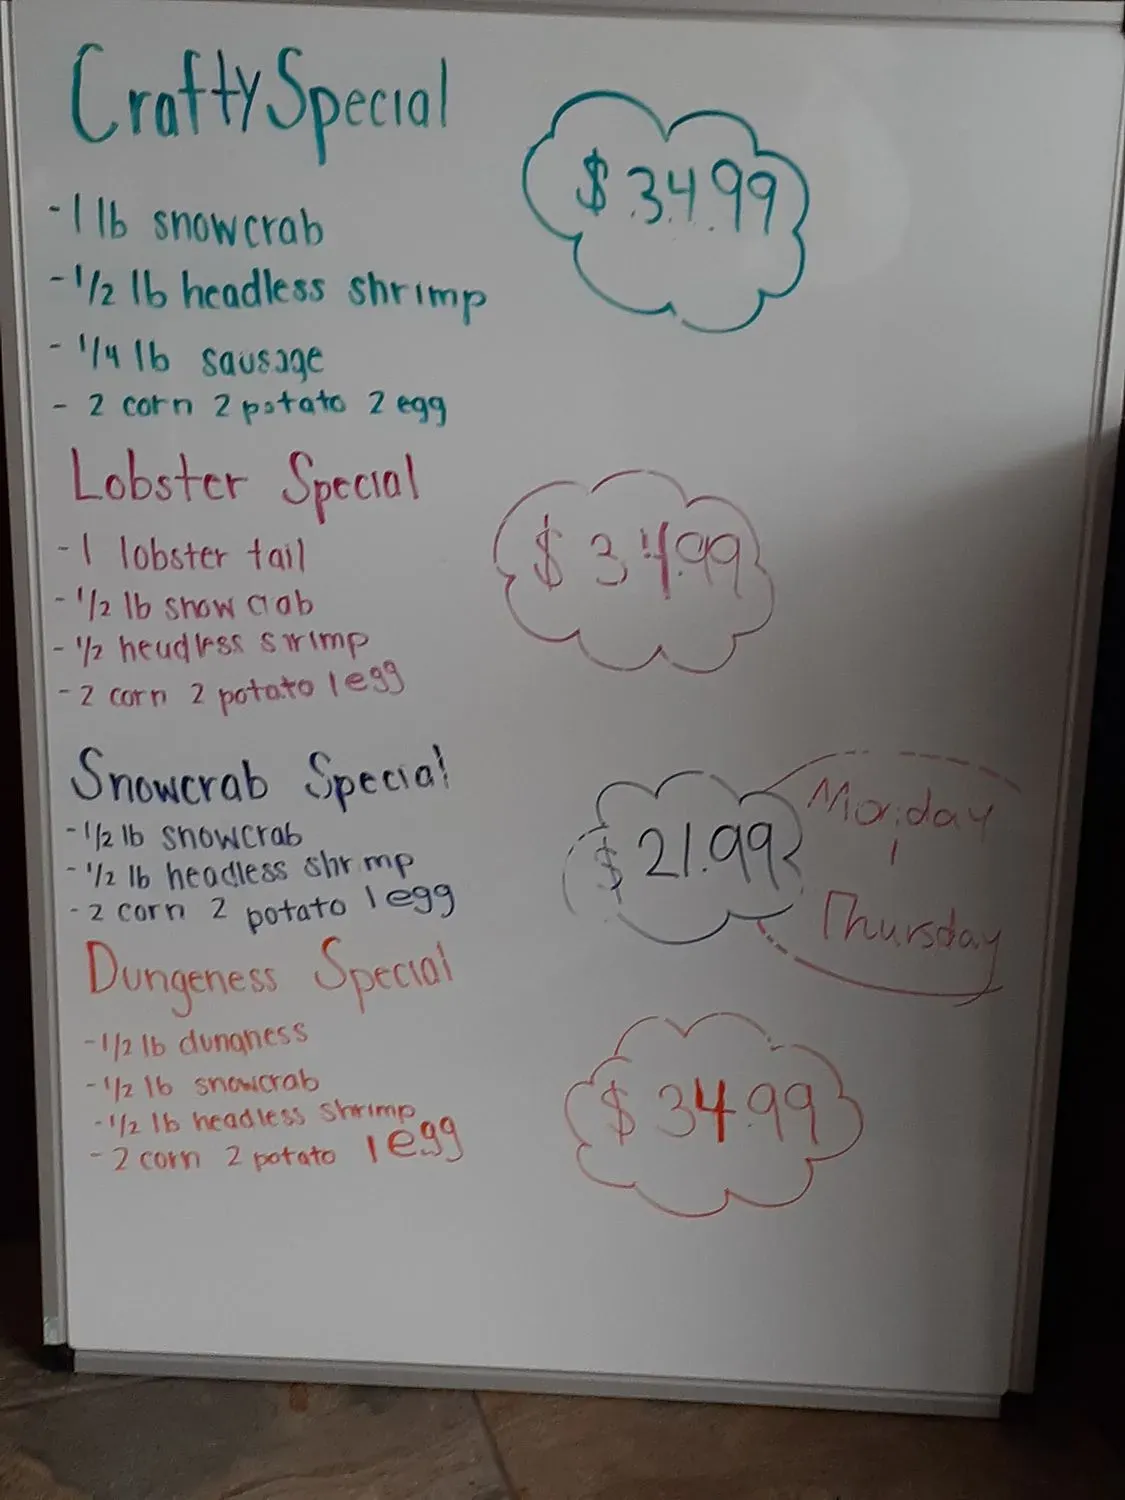 Crafty Special
$34.99
-1 lb snowcrab
-1/2 lb headless shrimp
-1/4 lb sausage
- 2 corn 2 potato 2 egg
Lobster Special
$34.99
-1 lobster tail
-1/2 lb snow crab
-1/2 headless shrimp
-2 corn 2 potato 1 egg
Snowcrab Special
$21.99
Monday
-
Thursday
-1/2 lb snowcrab
-1/2 lb headless shrimp
-2 corn 2 potato 1 egg
Dungeness Special
$34.99
-1/2 lb dungness
-1/2 lb snowcrab
-1/2 lb headless shrimp
-2 corn 2 potato 1 egg